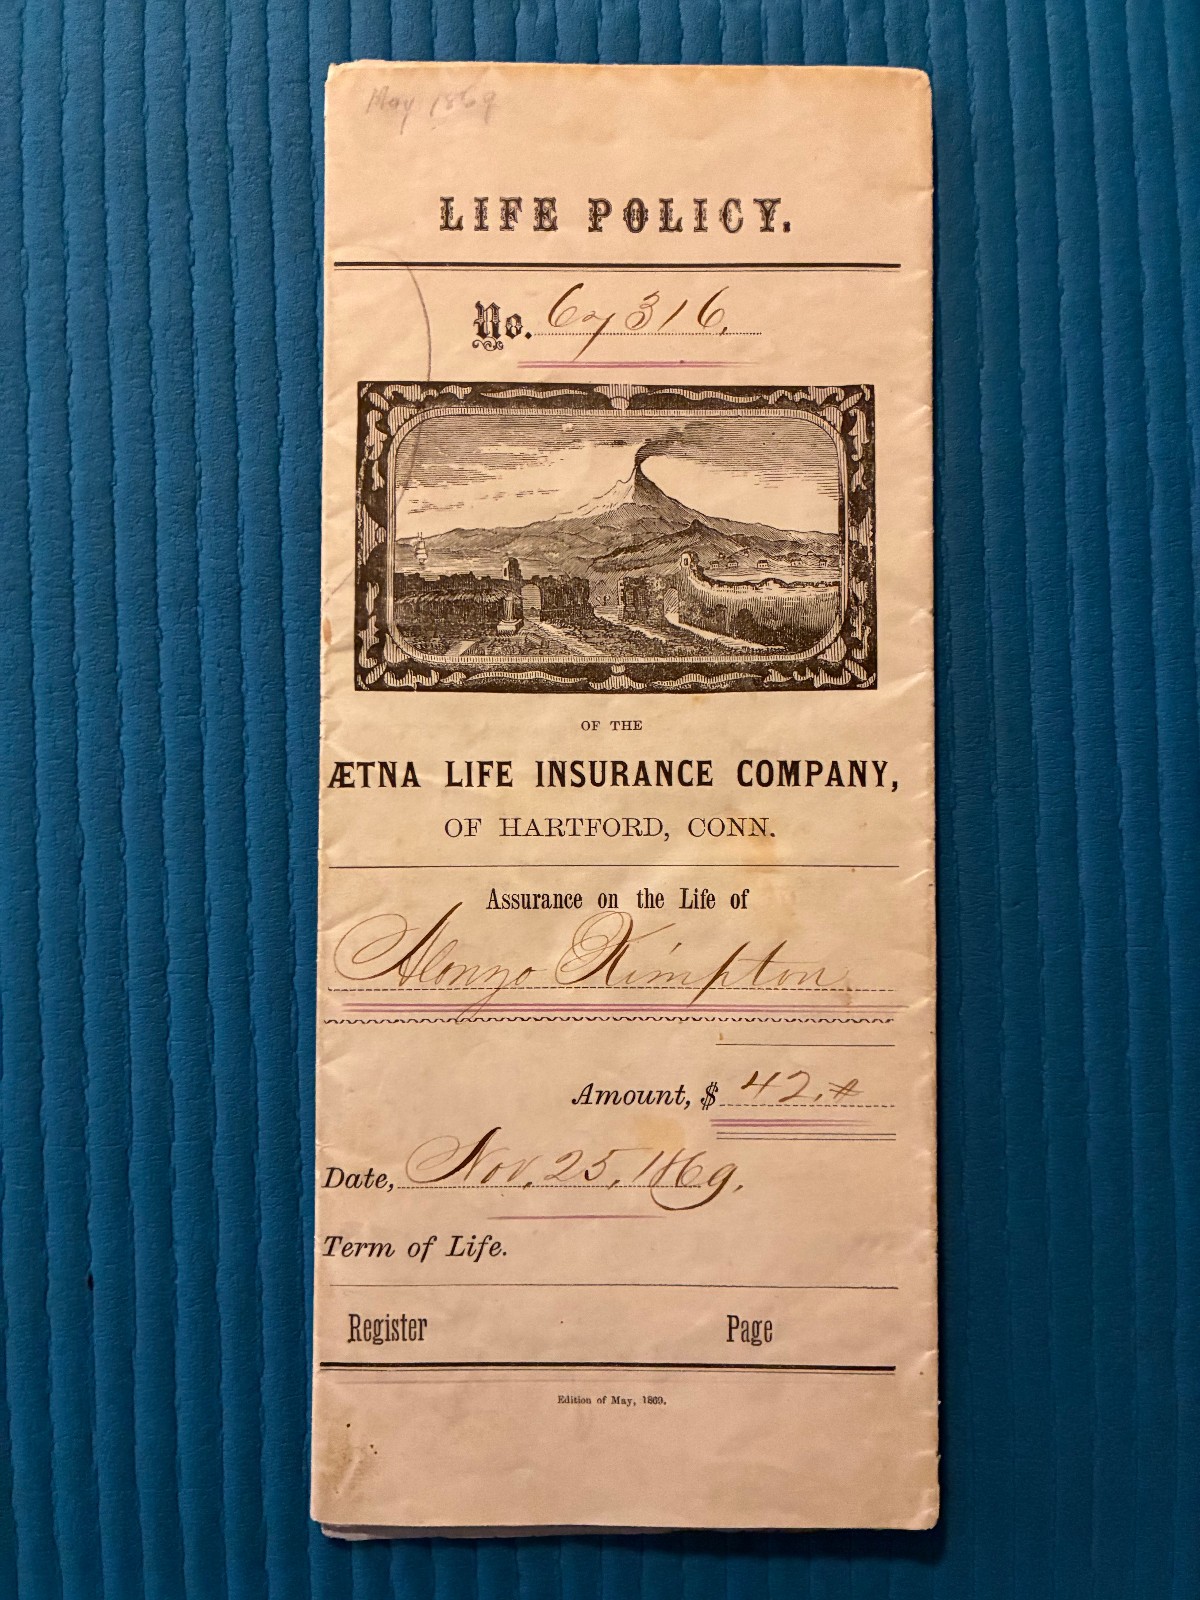 May 1869
LIFE POLICY.
No. 67316,
OF THE
ÆTNA LIFE INSURANCE COMPANY,
OF HARTFORD, CONN.
Assurance on the Life of
Alonzo Kimpton
Amount, $ 42.#
Date, Nov. 25, 1869.
Term of Life.
Register Page
Edition of May, 1869.